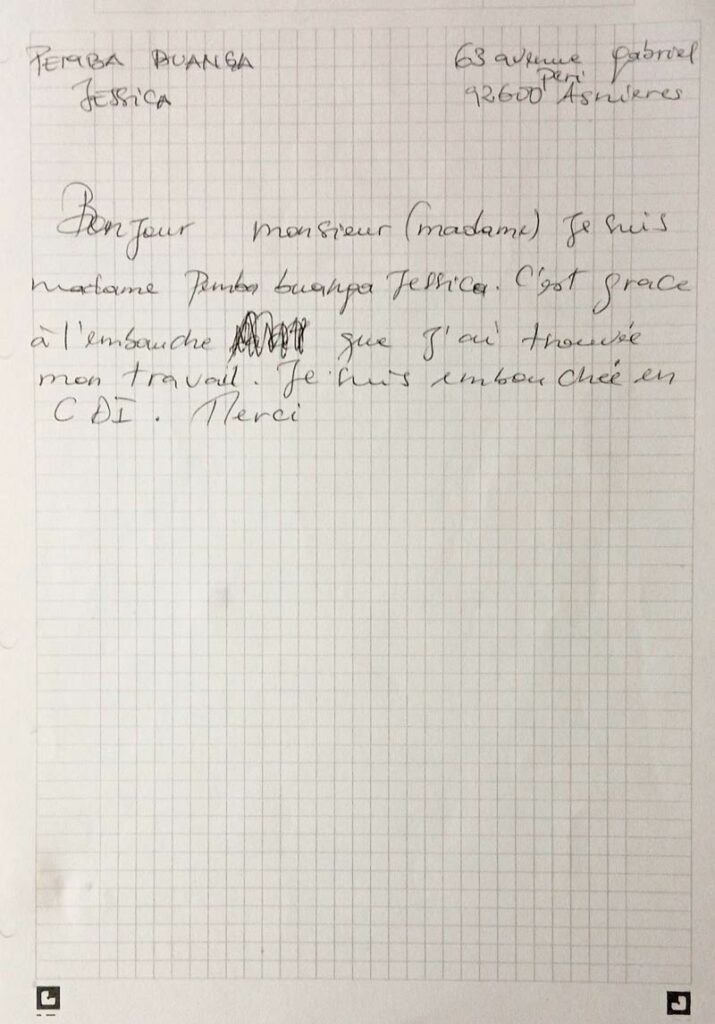 PEMBA BUANGA 63 avenue gabriel
peri
JESSICA 92600 Asnieres
Bonjour monsieur (madame) Je suis
madame Pemba buanga Jessica. C'est grace
à l'embauche que j'ai trouvée
mon travail. Je suis embouchée en
CDI. Merci